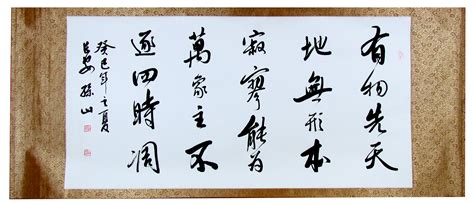 有物先天
地無形本
寂寥能為
萬象主不
逐四時凋
癸巳年之夏
長安 孫山